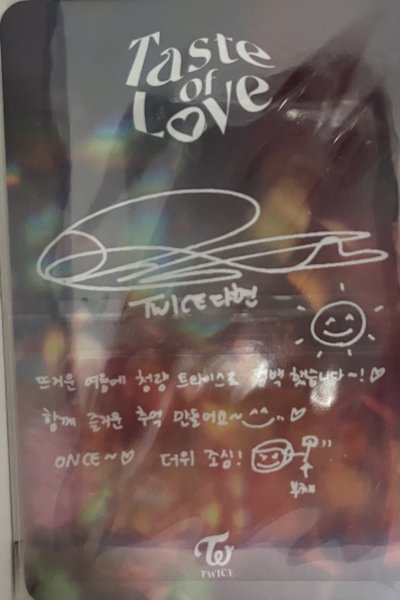 Taste
of
Love
TWICE 다현
뜨거운 여름에 청량 트와이스로 컴백 했습니다~!♡
함께 즐거운 추억 만들어요~^^,, ♡
ONCE~♡ 더위 조심!
TWICE